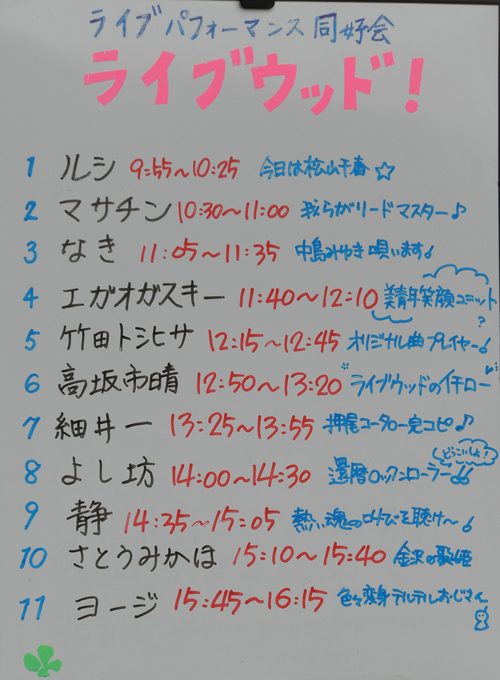 ライブパフォーマンス同好会
ライブウッド!
1 ルシ 9:55〜10:25 今日は松山千春☆
2 マサチン 10:30〜11:00 我らがリードマスター♪
3 なき 11:05〜11:35 中島みゆき唄います♪
4 エガオガスキー 11:40〜12:10 美青年笑顔ユニット?
5 竹田トシヒサ 12:15〜12:45 オリジナル曲プレイヤー♪
6 高坂市晴 12:50〜13:20 "ライブウッドのイチロー"
7 細井一 13:25〜13:55 押尾コータロー完コピ♪
どっこいしょ!
8 よし坊 14:00〜14:30 還暦ロックンローラー
9 静 14:35〜15:05 熱い魂の叫びを聴け〜♪
10 さとうみかほ 15:10〜15:40 金沢の歌姫
11 ヨージ 15:45〜16:15 色々変身テルテルおじさん